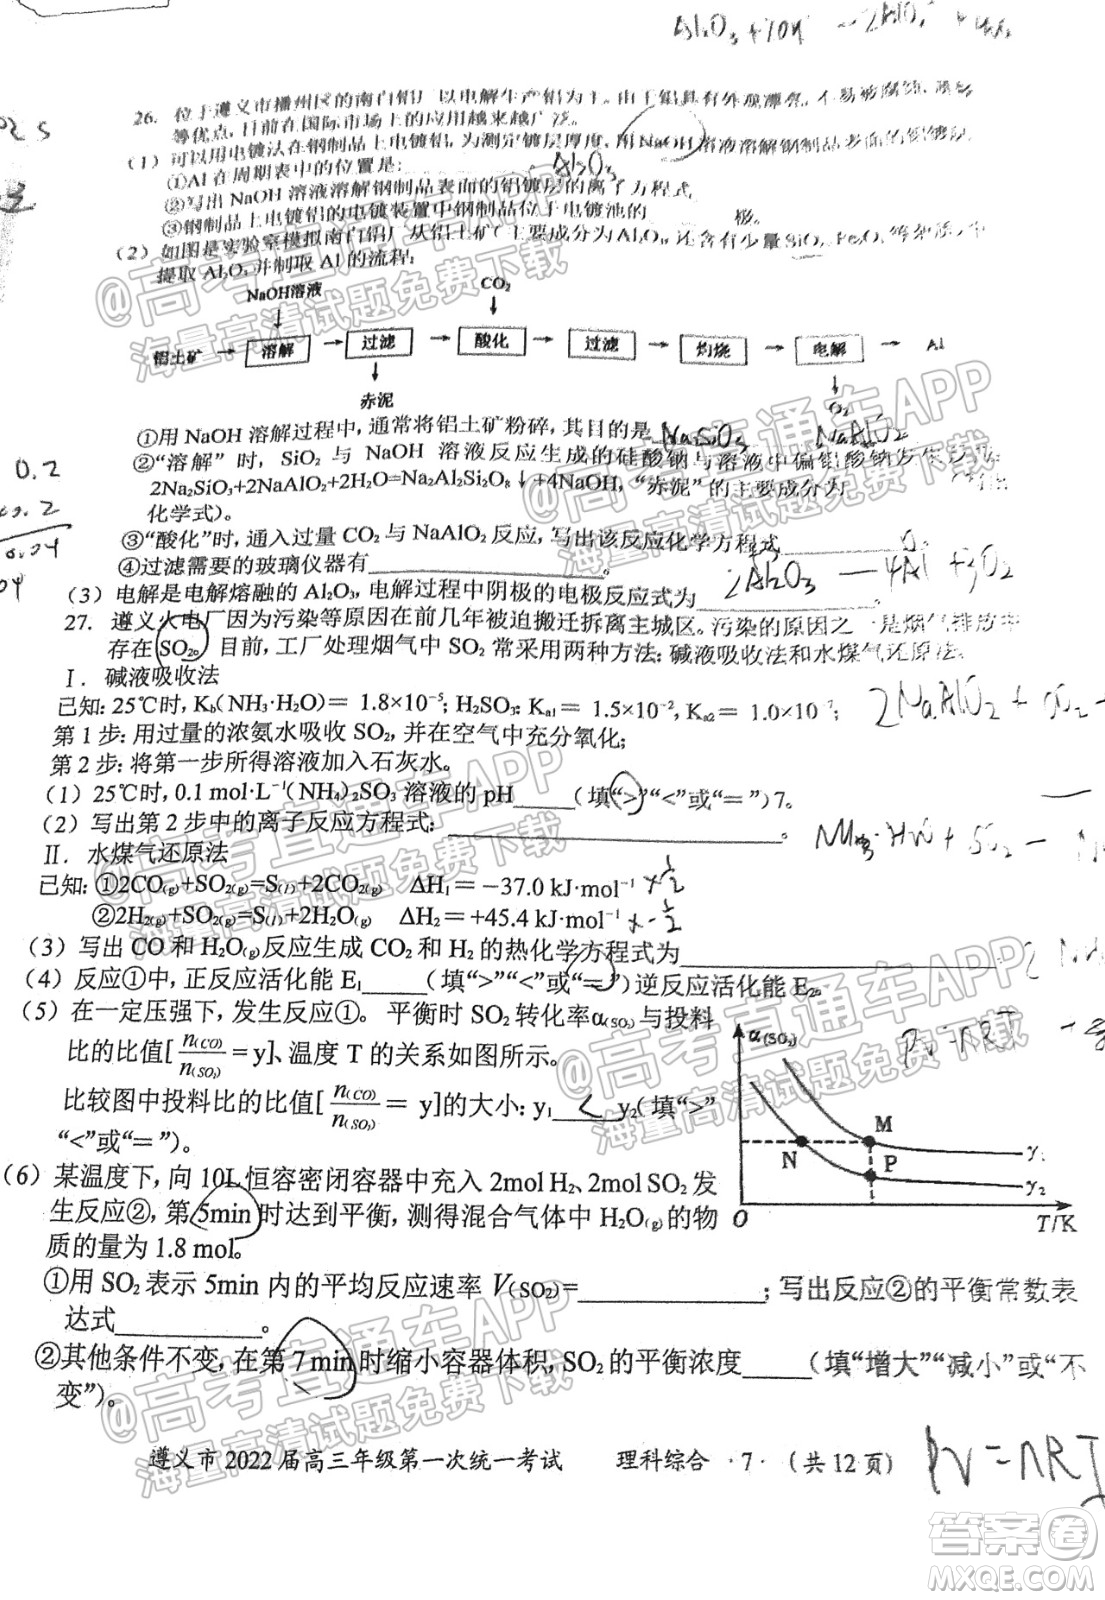 26. 位于遵义市播州区的南白铝厂以电解生产铝为主。由于铝具有外观漂亮、不易被腐蚀、
等优点，目前在国际市场上的应用越来越广泛。
(1) 可以用电镀法在钢制品上电镀铝，为测定镀层厚度，用NaOH溶液溶解钢制品表面的铝镀层。
①Al在周期表中的位置是：
②写出NaOH溶液溶解钢制品表面的铝镀层的离子方程式
③钢制品上电镀铝的电镀装置中钢制品位于电镀池的 极。
(2) 如图是实验室模拟南白铝厂从铝土矿(主要成分为Al₂O₃，还含有少量SiO₂、Fe₂O₃等杂质)中
提取Al₂O₃并制取Al的流程：
NaOH溶液 CO₂
铝土矿 溶解 过滤 酸化 过滤 灼烧 电解 Al
赤泥 O₂
①用NaOH溶解过程中，通常将铝土矿粉碎，其目的是 Na₂SiO₃ NaAlO₂
②“溶解”时，SiO₂与NaOH溶液反应生成的硅酸钠与溶液中偏铝酸钠发生反应：
2Na₂SiO₃+2NaAlO₂+2H₂O=Na₂Al₂Si₂O₈↓+4NaOH，“赤泥”的主要成分为
化学式)。
③“酸化”时，通入过量CO₂与NaAlO₂反应，写出该反应化学方程式________。
④过滤需要的玻璃仪器有________________。
2Al₂O₃ — 4Al + 3O₂
(3) 电解是电解熔融的Al₂O₃，电解过程中阴极的电极反应式为________
27. 遵义火电厂因为污染等原因在前几年被迫搬迁拆离主城区。污染的原因之一是烟气排放中
存在SO₂。目前，工厂处理烟气中SO₂常采用两种方法：碱液吸收法和水煤气还原法。
Ⅰ．碱液吸收法
已知：25℃时，K_b(NH₃·H₂O)=1.8×10⁻⁵；H₂SO₃：K_a1=1.5×10⁻²，K_a2=1.0×10⁻⁷；
第1步：用过量的浓氨水吸收SO₂，并在空气中充分氧化；
第2步：将第一步所得溶液加入石灰水。
(1) 25℃时，0.1 mol·L⁻¹(NH₄)₂SO₃溶液的pH____(填“>”“<”或“=”)7。
(2) 写出第2步中的离子反应方程式：________________。
Ⅱ．水煤气还原法
已知：①2CO(g)+SO₂(g)=S(l)+2CO₂(g) ΔH₁=−37.0 kJ·mol⁻¹
②2H₂(g)+SO₂(g)=S(l)+2H₂O(g) ΔH₂=+45.4 kJ·mol⁻¹
(3) 写出CO和H₂O(g)反应生成CO₂和H₂的热化学方程式为________________
(4) 反应①中，正反应活化能E₁____(填“>”“<”或“=”)逆反应活化能E₂。
(5) 在一定压强下，发生反应①。平衡时SO₂转化率α(SO₂)与投料
比的比值[n(CO)/n(SO₂)=y]、温度T的关系如图所示。
比较图中投料比的比值[n(CO)/n(SO₂)=y]的大小：y₁ < y₂(填“>”
“<”或“=”)。
α(SO₂)
M
N P
y₁
y₂
O T/K
(6) 某温度下，向10L恒容密闭容器中充入2mol H₂、2mol SO₂发
生反应②，第5min时达到平衡，测得混合气体中H₂O(g)的物
质的量为1.8 mol。
①用SO₂表示5min内的平均反应速率V(SO₂)=________；写出反应②的平衡常数表
达式________。
②其他条件不变，在第7min时缩小容器体积，SO₂的平衡浓度____(填“增大”“减小”或“不
变”)。
遵义市2022届高三年级第一次统一考试 理科综合 ·7·（共12页）
PV=nRT
@高考直通车APP
海量高清试题免费下载
@高考直通车APP
海量高清试题免费下载
@高考直通车APP
海量高清试题免费下载
@高考直通车APP
海量高清试题免费下载
@高考直通车APP
海量高清试题免费下载
@高考直通车APP
海量高清试题免费下载
答案圈
MXQE.COM